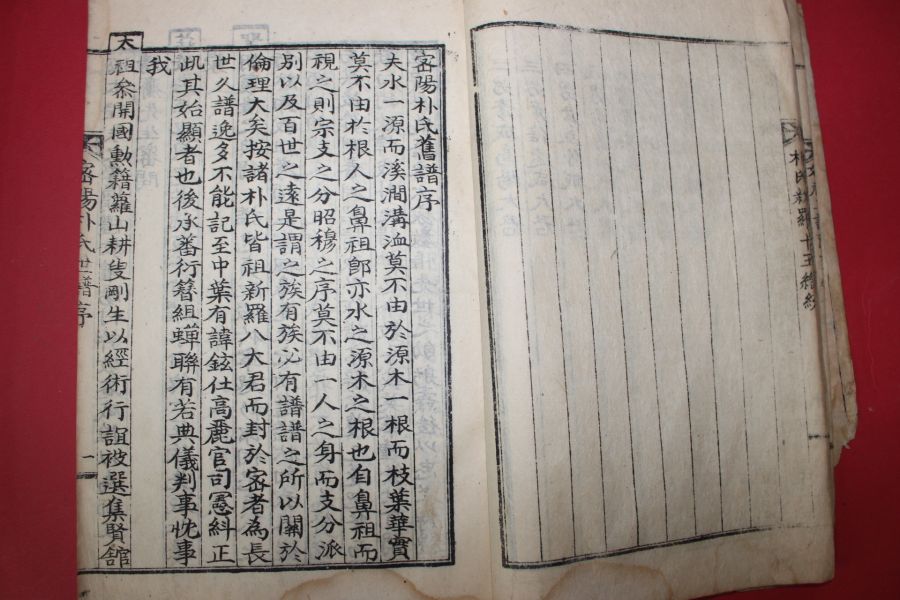 朴氏新羅
密陽朴氏舊譜序
夫水一源而溪澗溝洫莫不由於源木一根而枝葉華實
莫不由於根人之鼻祖卽亦水之源木之根也自鼻祖而
視之則宗支之分昭穆之序莫不由一人之身而支分派
別以及百世之遠是謂之族有族必有譜譜之所以關於
倫理大矣按諸朴氏皆祖新羅八大君而封於密者為長
世久譜逸多不能記至中葉有諱鉉仕高麗官司憲糾正
此其始顯者也後承蕃衍簪組蟬聯有若典儀判事忱事
我
太祖叅開國勳籍蘿山耕叟剛生以經術行誼被選集賢舘
密陽朴氏世譜序 一